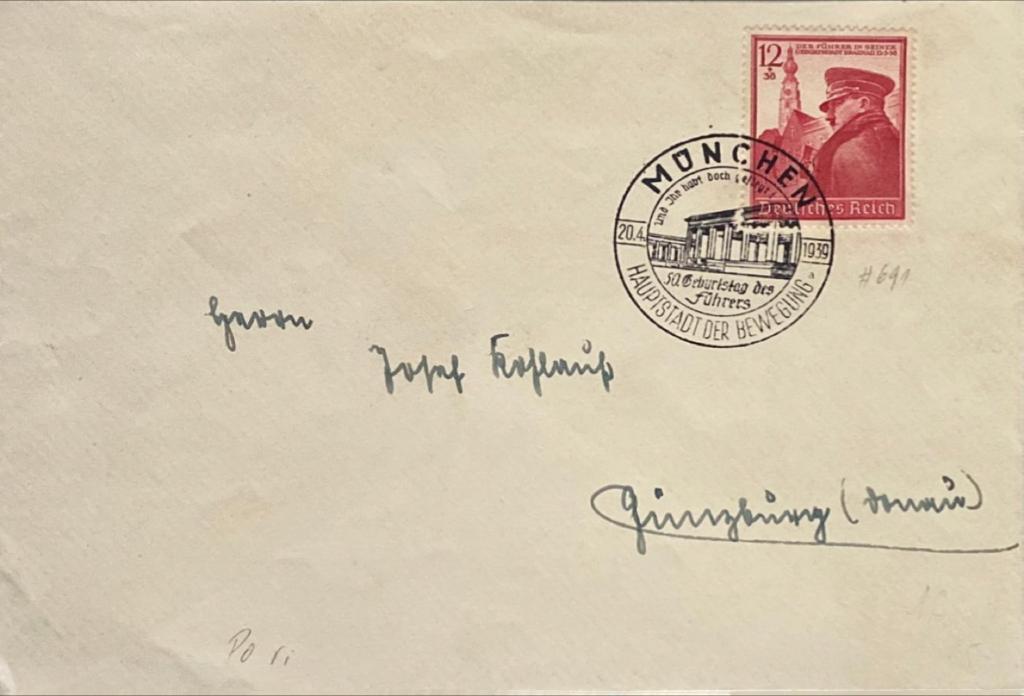 12
+
38
DER FÜHRER IN SEINER
GEBURTSSTADT BRAUNAU 12·3·38
Deutsches Reich
MÜNCHEN
und Ihr habt doch gesiegt!
20.4. 1939
50. Geburtstag des
Führers
HAUPTSTADT DER BEWEGUNG
a
#691
Herrn
Josef Kohlauß
Günzburg (Donau)